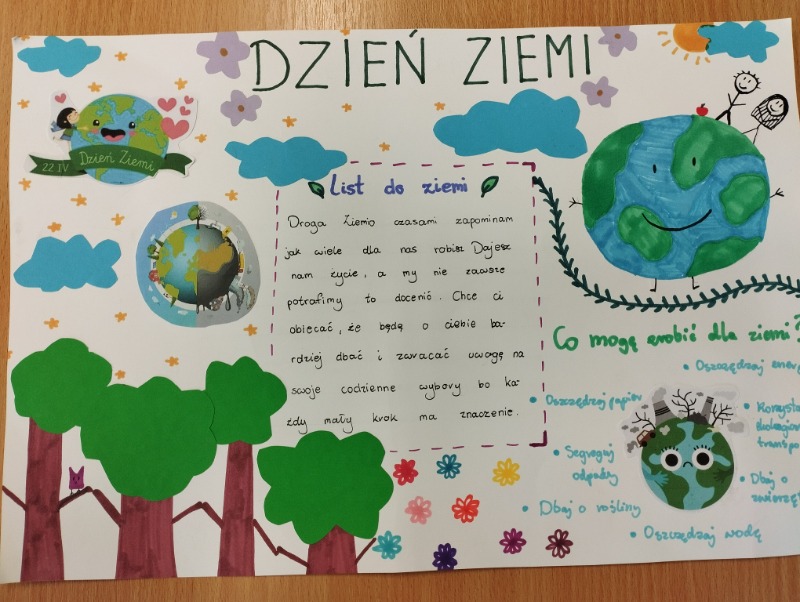 DZIEŃ ZIEMI
22 IV Dzień Ziemi
List do ziemi
Droga Ziemio czasami zapominam
jak wiele dla nas robisz Dajesz
nam życie, a my nie zawsze
potrafimy to docenić. Chcę ci
obiecać, że będę o ciebie ba-
rdziej dbać i zwracać uwagę na
swoje codzienne wybory bo ka-
żdy mały krok ma znaczenie.
Co mogę zrobić dla ziemi?
• Oszczędzaj energ
• Oszczędzaj papier
• Korzysta
ekologicz
transpo
• Segreguj
odpady
• Dbaj o
zwierzęt
• Dbaj o rośliny
• Oszczędzaj wodę